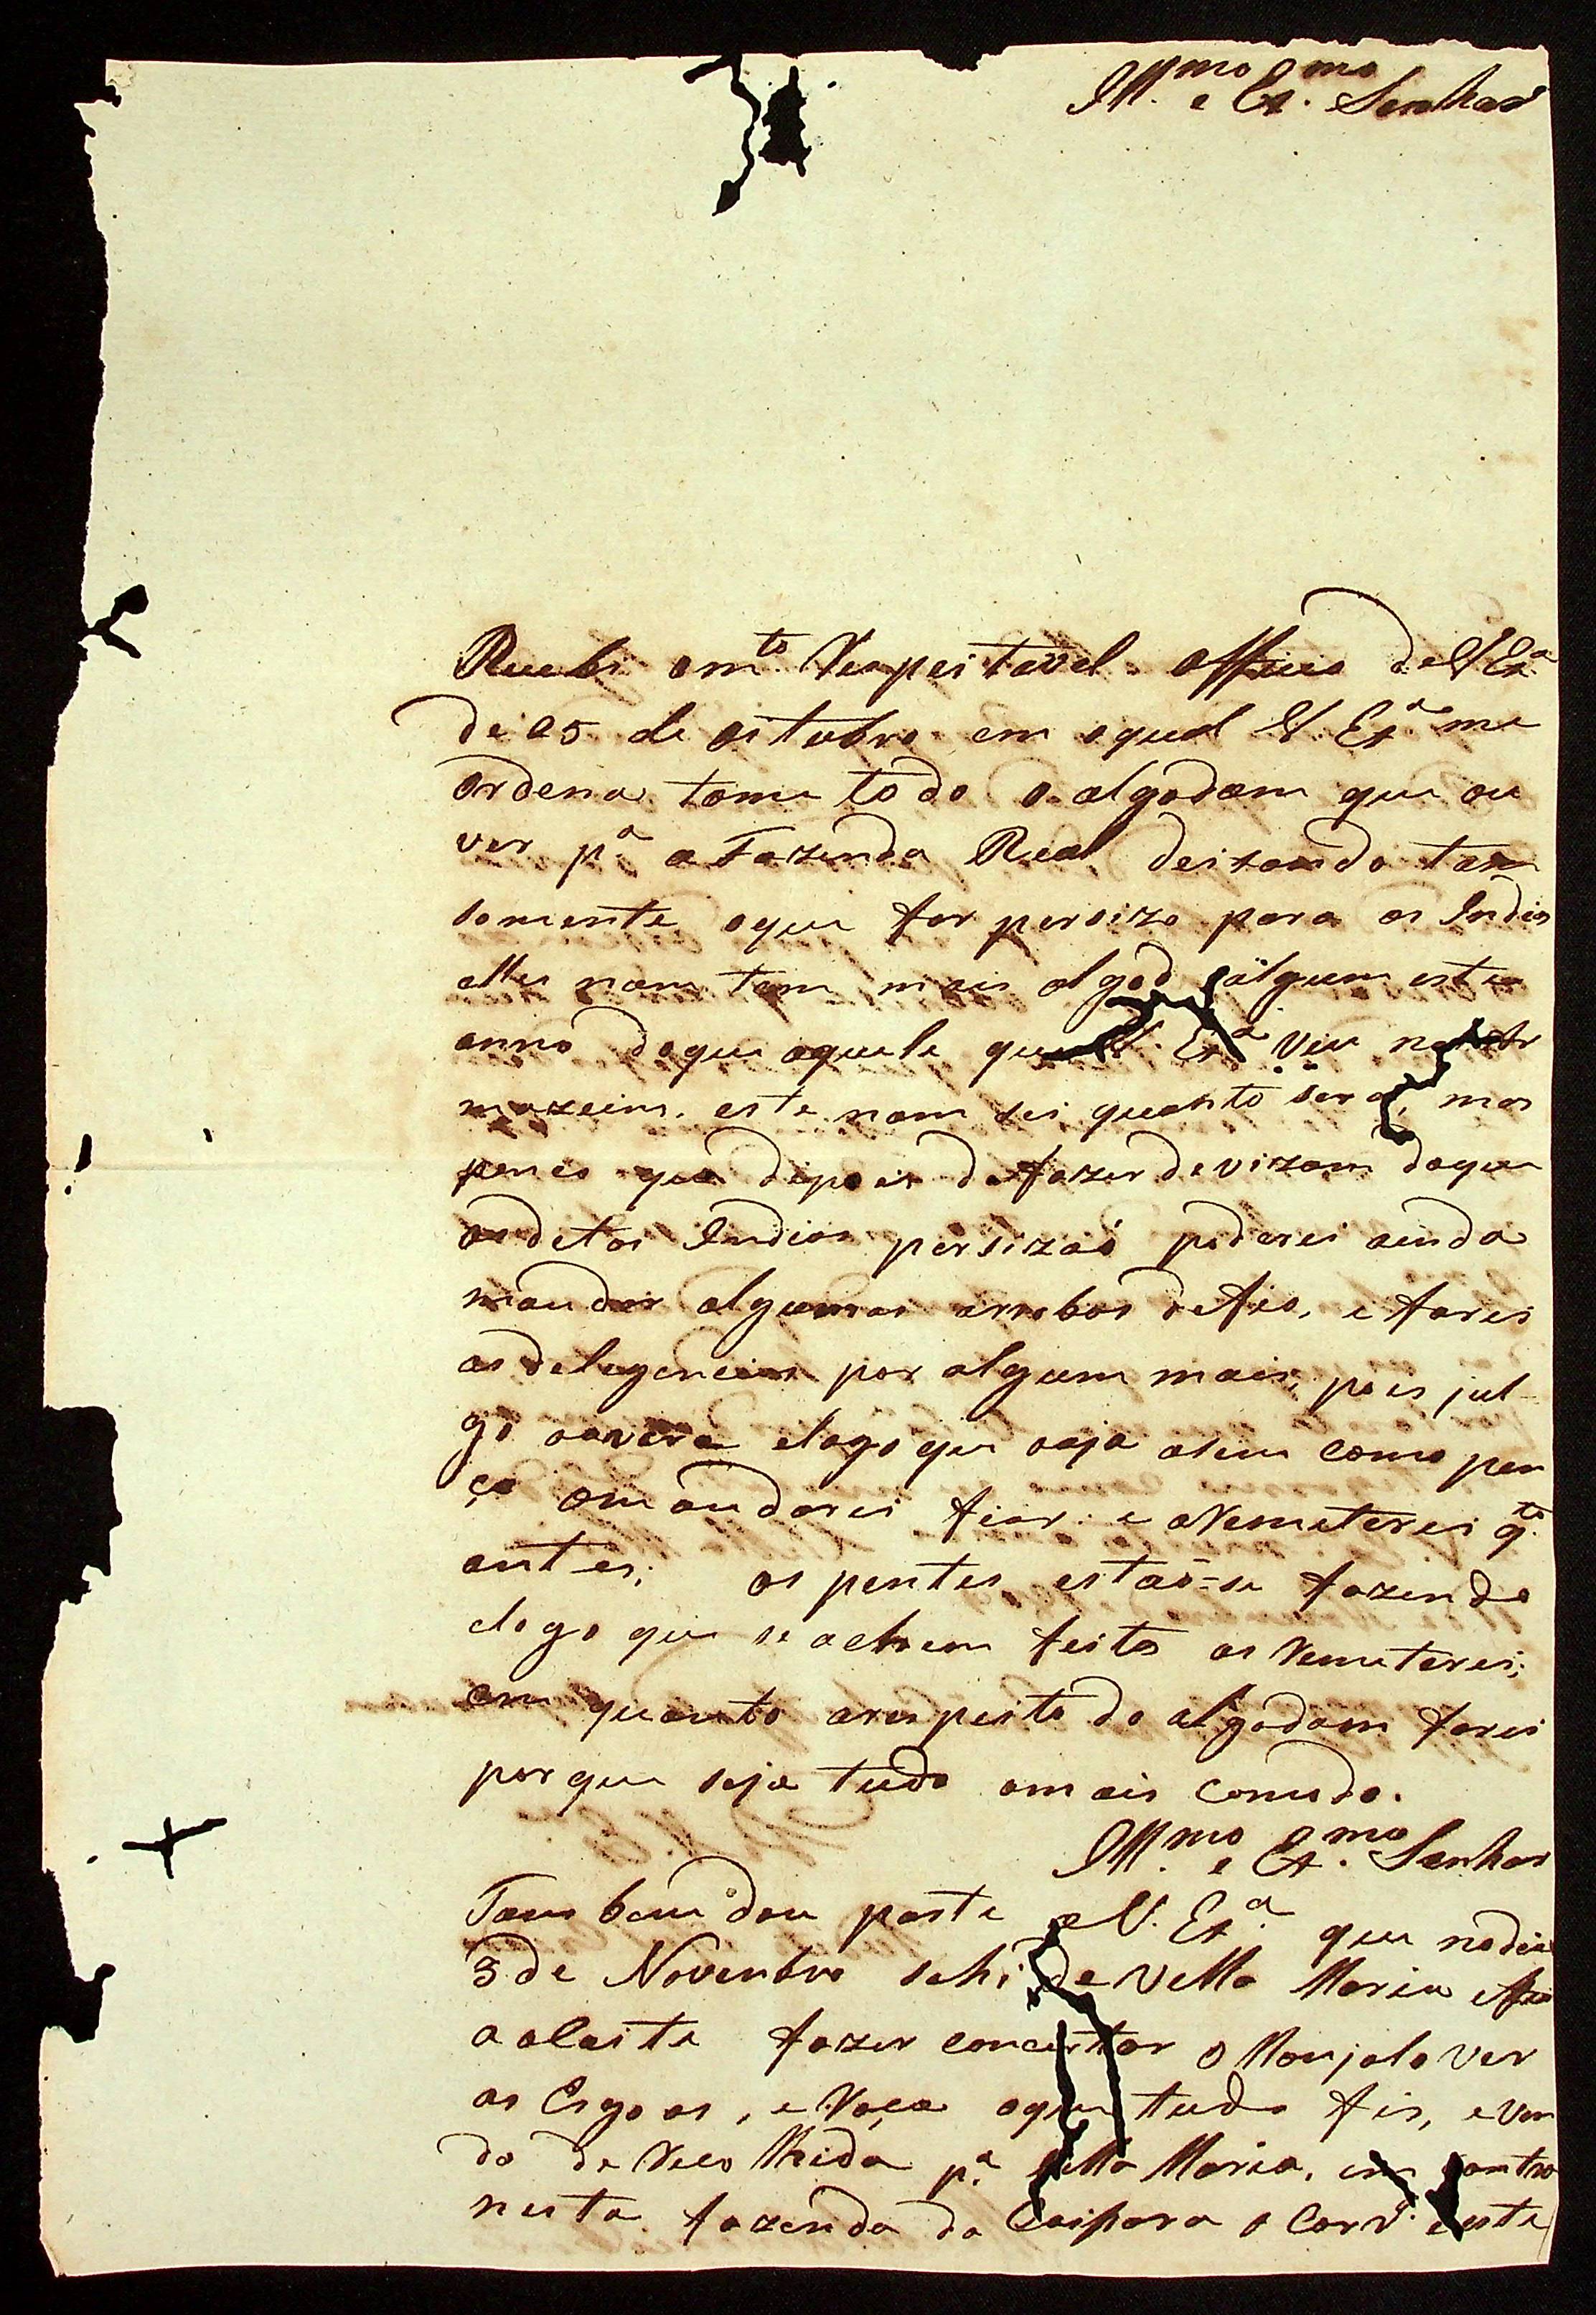 Ill.mo e Ex.mo Senhor
Recebi o m.to Respeitavel officio de V Ex.a
de 25 de oitubro em o qual V. Ex.a me
ordena tome todo o algodam que ou
ver p.a a Fazenda Real deixando tam
somente oque for persizo para os Indios
elles nam tem mais algod algum este
anno doque aquele que V. Ex.a viu no
mazeim. este nam sei quanto sera, mas
penço que dipois de fazer devizam doque
os detos Indios persizaó poderei ainda
mandar algumas arrobas de fio, e farei
as delegencias por algum mais, pois jul
go averá elogo que aja asim como pen
ço omandarei fiar e o Remeterei q.to
antes; os pentes estaõ-se fazendo
elogo que se achem feitos os Remeterei;
em quanto arespeito do algodam farei
por que seja tudo omais comudo.
Ill.mo e Ex.mo Senhor
Tambem dou parte a V. Ex.a que nodia
3 de Novembro sahi de Vella Maria e fui
a aleite fazer concertar o Monjolo ver
as Egoas, e Roça oque tudo fis, e vin
do de Recolhida p.a Vella Maria, em contro
nesta fazenda da Caisara o Corr. este